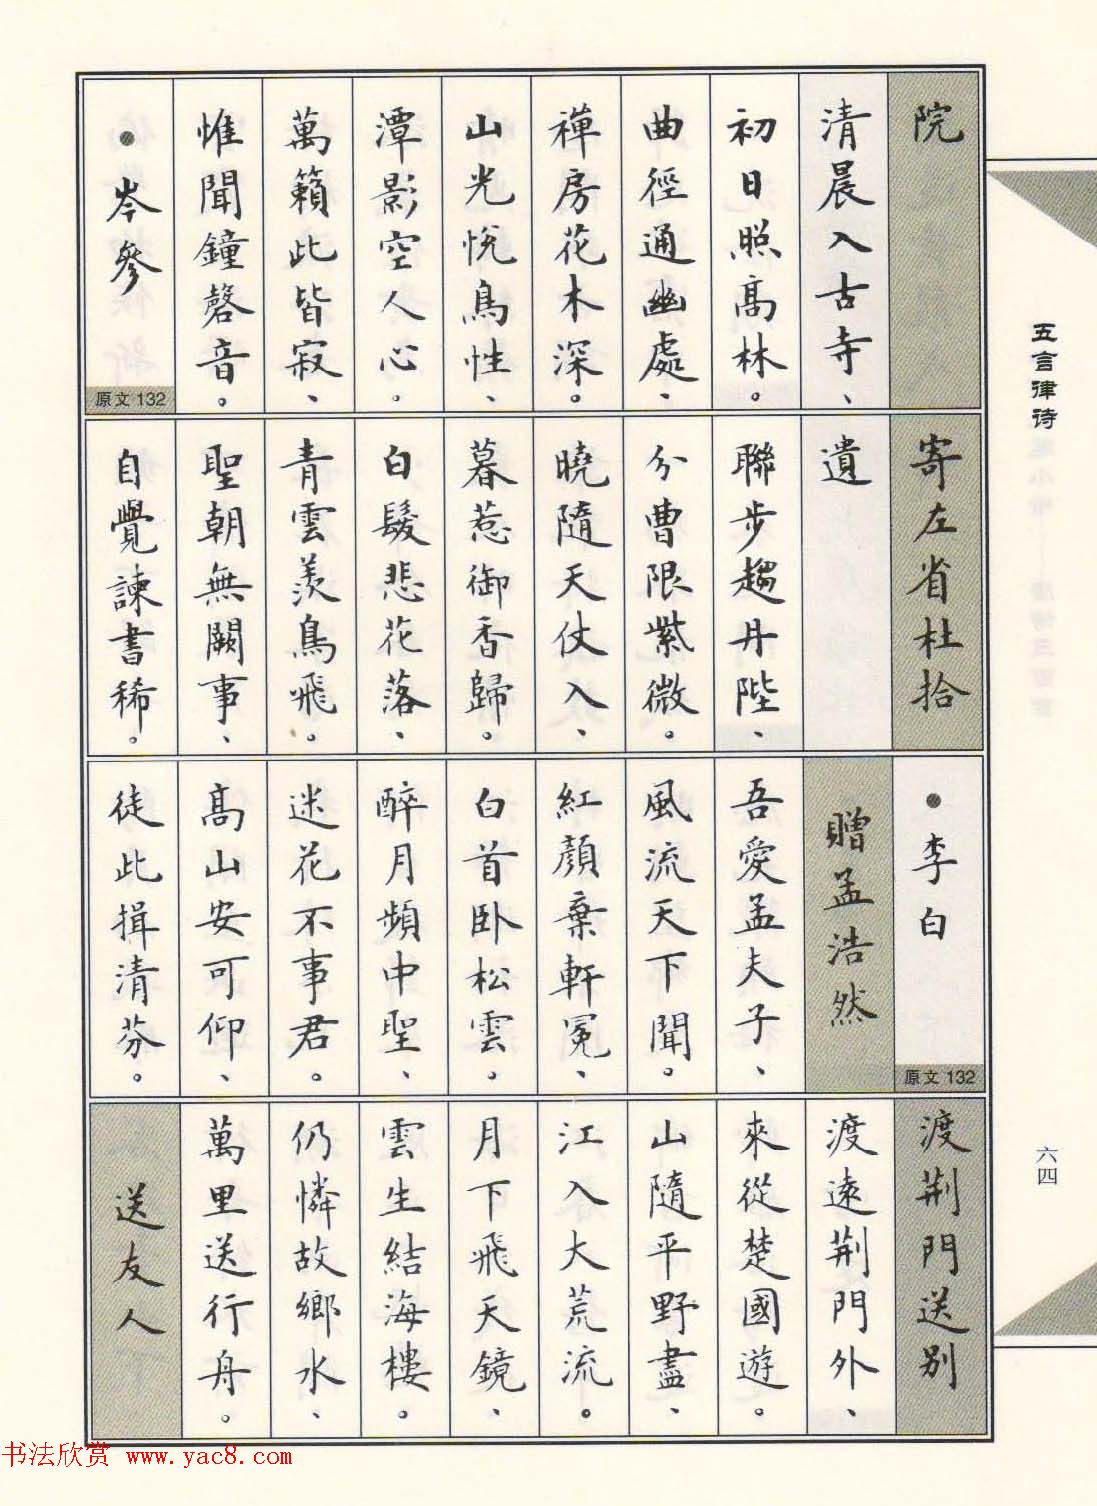 院
清晨入古寺、
初日照高林。
曲徑通幽處、
禪房花木深。
山光悅鳥性、
潭影空人心。
萬籟此皆寂、
惟聞鐘磬音。
•岑參
原文132
寄左省杜拾
遺
聯步趨丹陛、
分曹限紫微。
曉隨天仗入、
暮惹御香歸。
白髮悲花落、
青雲羨鳥飛。
聖朝無闕事、
自覺諫書稀。
•李白
原文132
贈孟浩然
吾愛孟夫子、
風流天下聞。
紅顏棄軒冕、
白首卧松雲。
醉月頻中聖、
迷花不事君。
高山安可仰、
徒此揖清芬。
渡荆門送别
渡遠荆門外、
來從楚國遊。
山隨平野盡、
江入大荒流。
月下飛天鏡、
雲生結海樓。
仍憐故鄉水、
萬里送行舟。
送友人
五言律诗
六四
书法欣赏 www.yac8.com